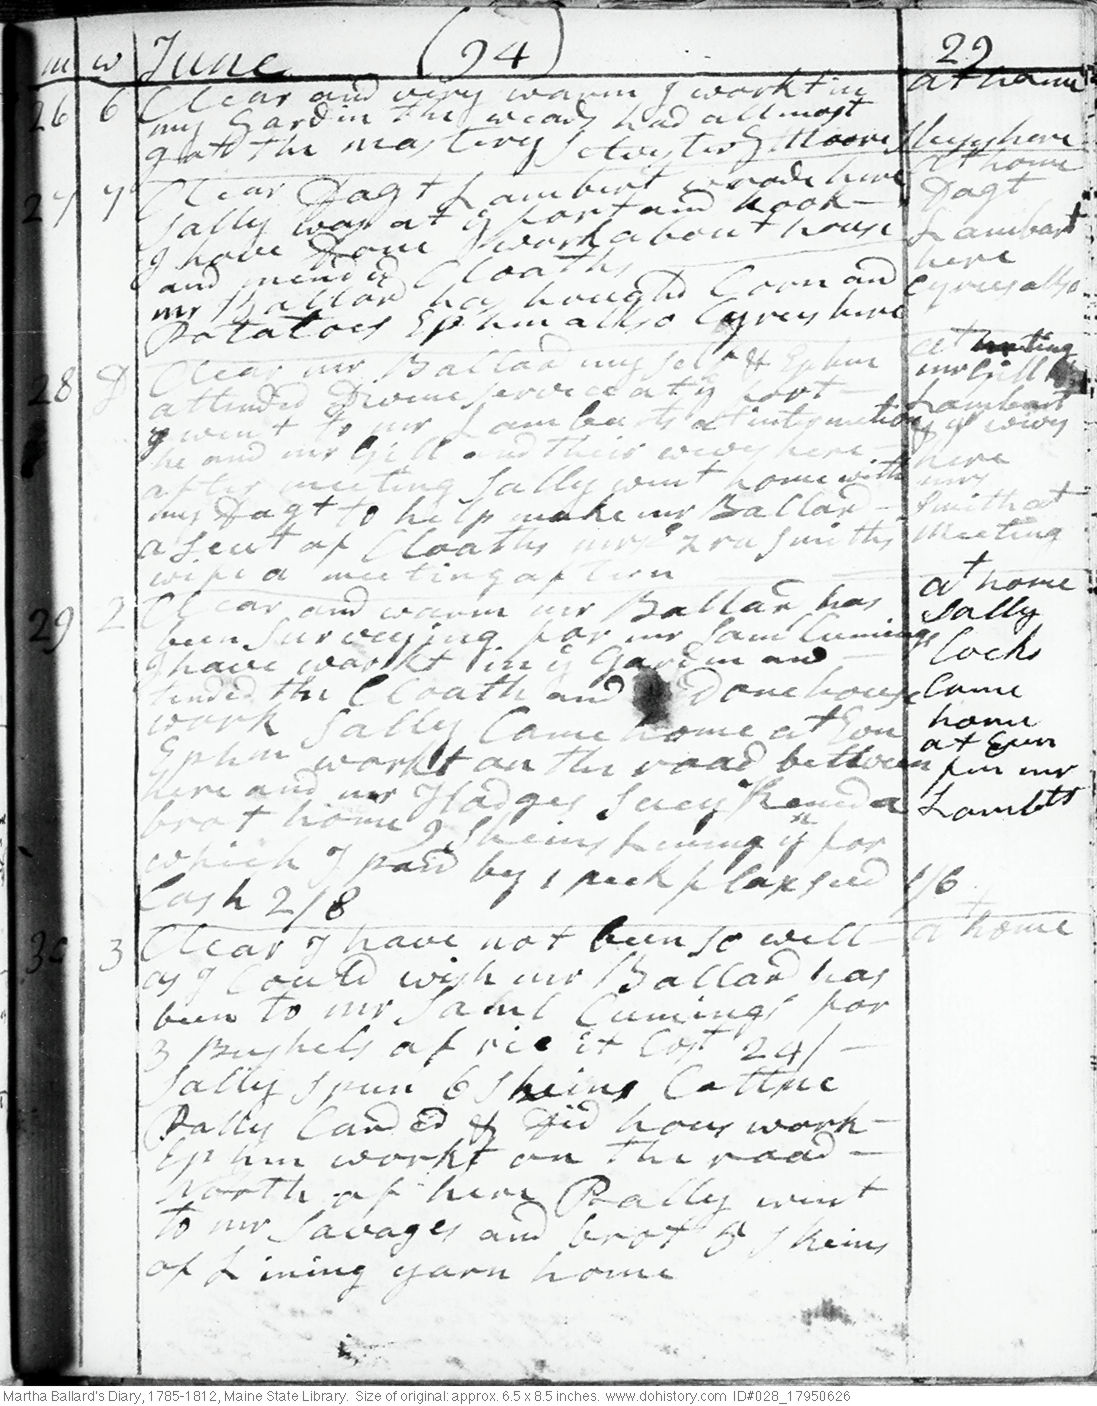 m w June (24) 29
26 6 Clear and very warm I workt in at home
my Gardin the weads had allmost
gott the mastery Silvester Moore sleeps here
27 7 Clear Dagt Lambert & wrode here at home
Sally was at ye fort and Hook Dagt
I have Done ye work about house Lambart
and mendid Cloaths here
mr Ballard has bought Corn and Cyrus allso
Potatoes Ephm allso Cyrus here
28 D Clear mr Ballard my self & Ephm at meeting
attended Divine service at ye fort mr Gill &
I went to mr Lamberts at intermition Lambart
he and mr Gill and their wives here & ys wives
after meeting Sally went home with here
my Dagt to help make mr Ballard mrs
a Seut of Cloaths Smiths Smith at
wife a meeting aftern meeting
29 2 Clear and warm mr Ballard has at home
been Surveying for mr Saml Cumings Sally
I have workt in ye Gardin and Cocks
tended the Cloath and Done house Came
work Sally Came home at Evn home
Ephm workt on the road between at Evn
here and mr Hodges
brot home 9 Skeins Lining yn for Lambtt
which I paid by 1 peck flaxseed 1/6
Cash 2/8
30 3 Clear I have not been so well at home
as I Could wish mr Ballard has
been to mr Saml Cumings for
3 Bushels of rie it Cost 24/
Sally Spun 6 Skeins Cottne
Pally Carded & Did hous work
Ephm workt on the road
North of here Pally went
to mr Savages and brot 5 Skeins
of Lining yarn home
Martha Ballard's Diary, 1785-1812, Maine State Library. Size of original: approx. 6.5 x 8.5 inches. www.dohistory.com ID#028_17950626